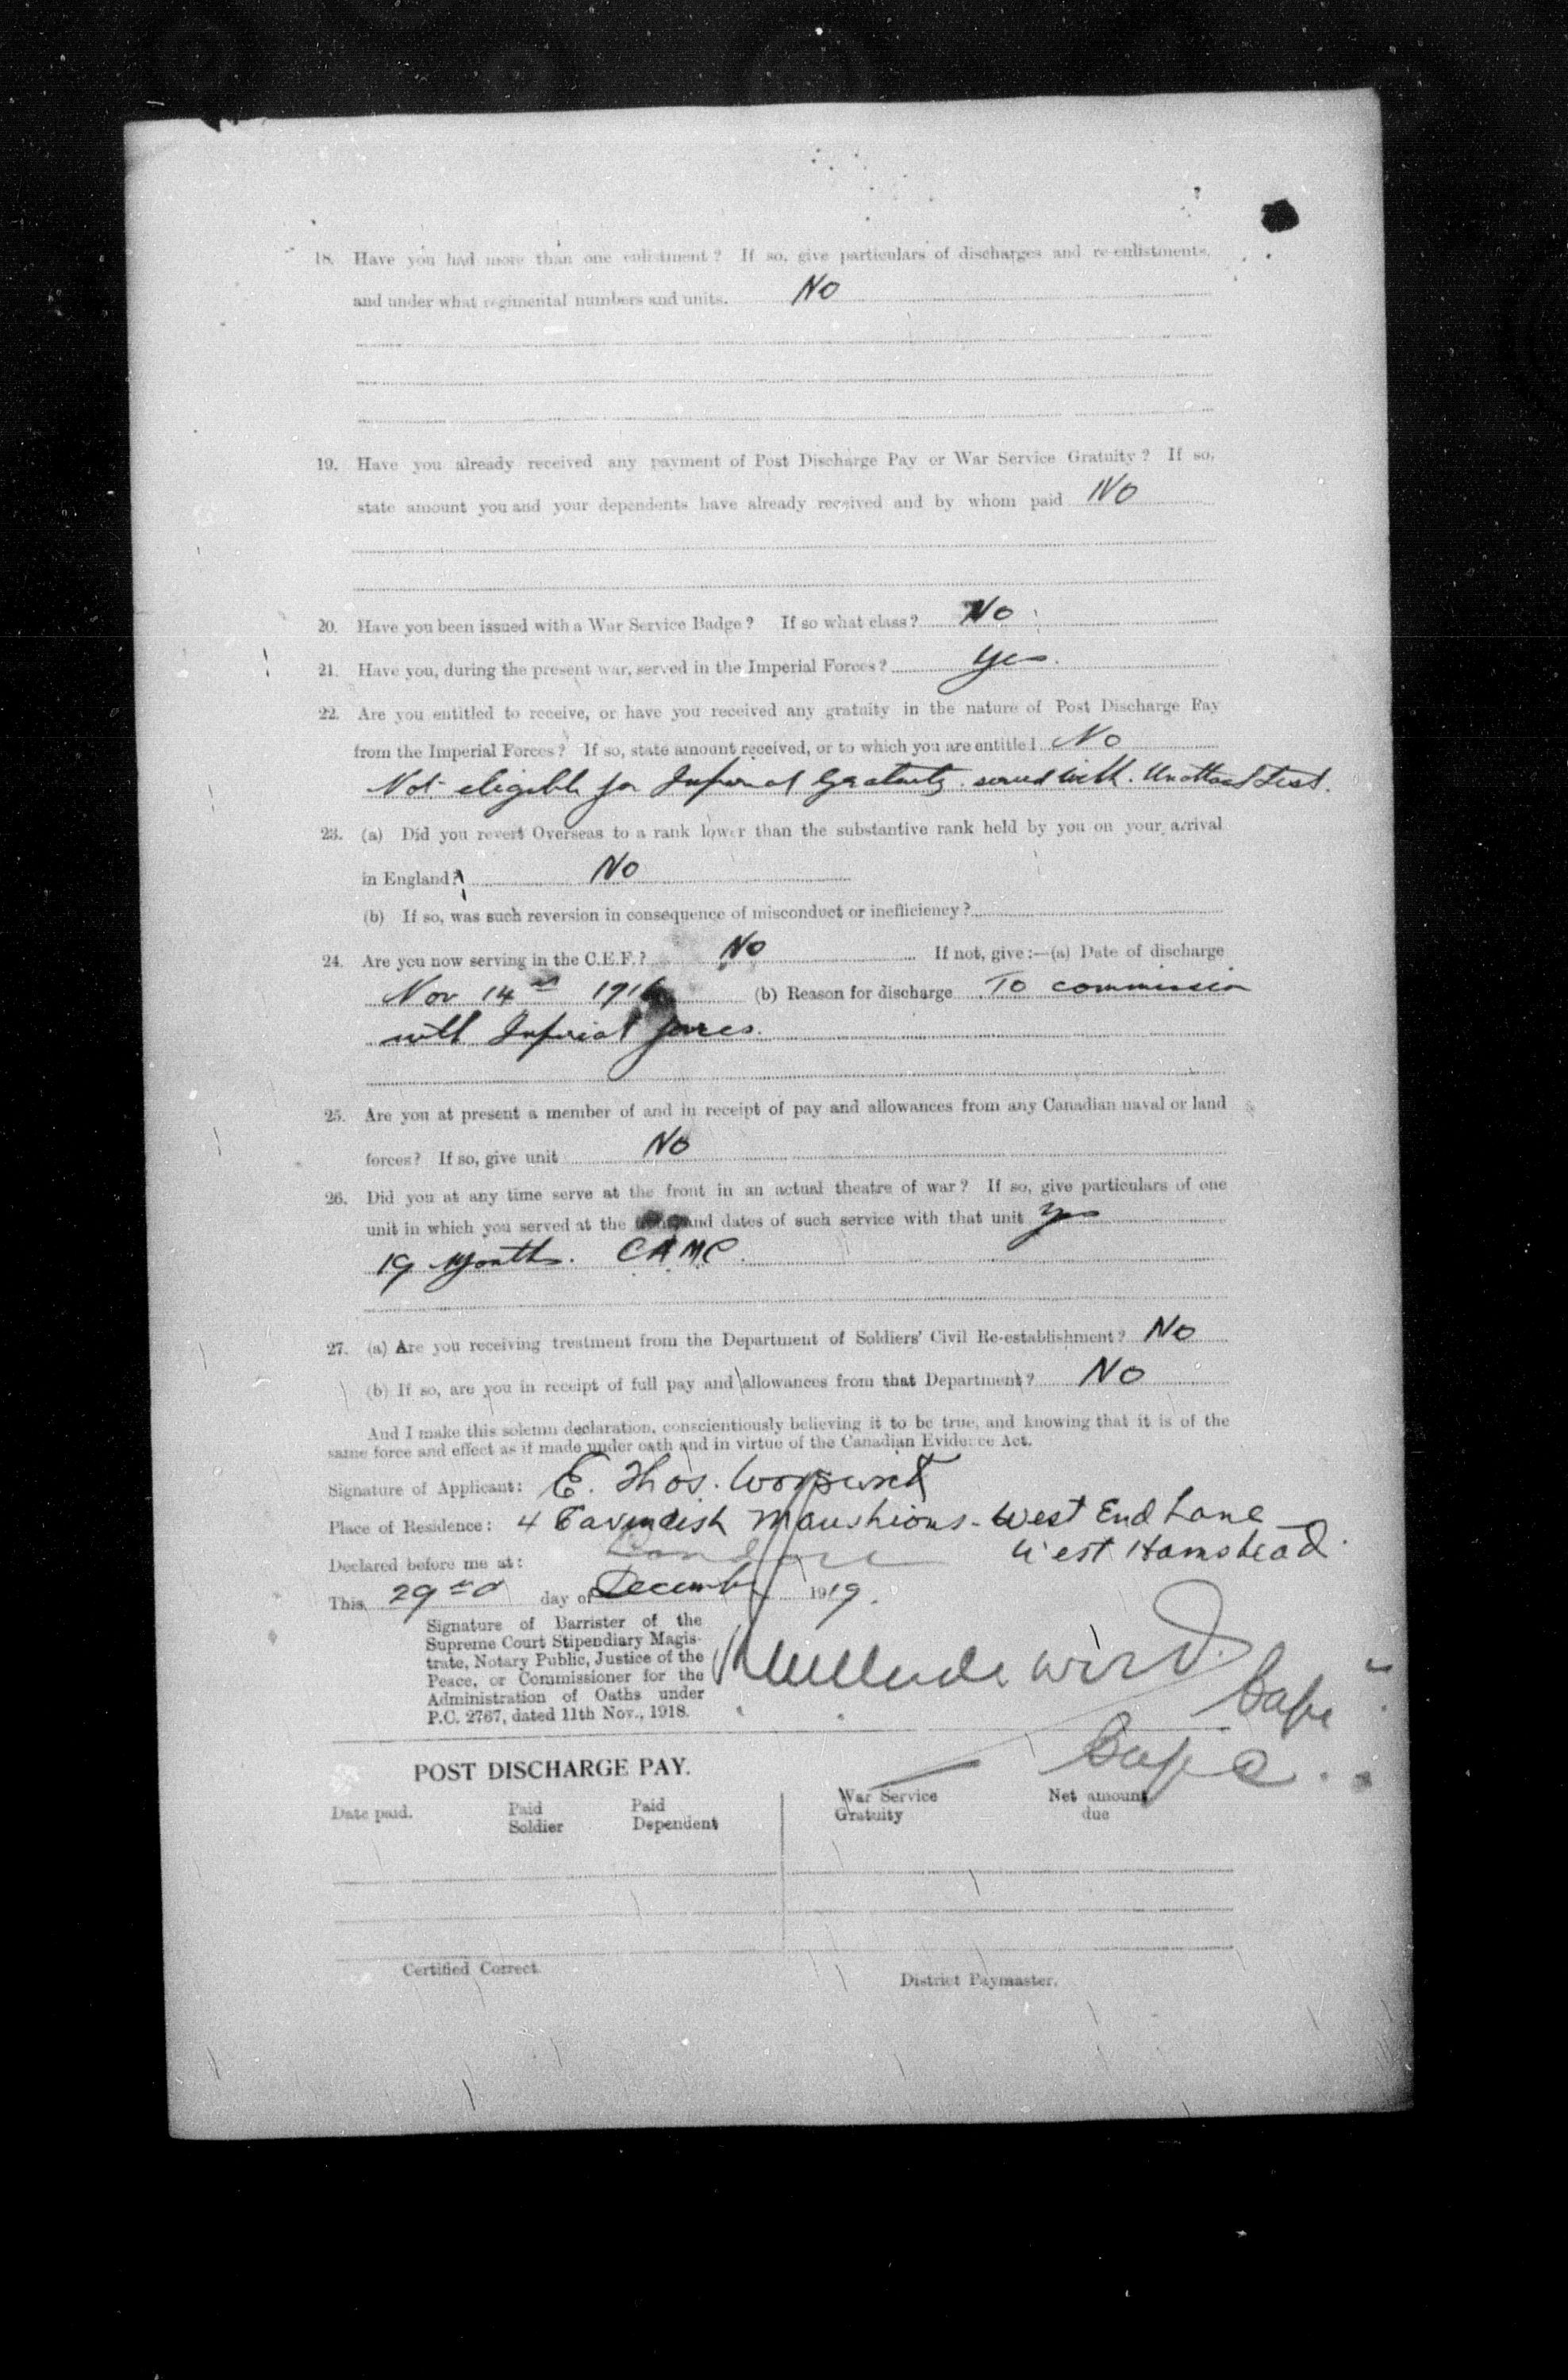 18. Have you had more than one enlistment? If so, give particulars of discharges and re-enlistments,
and under what regimental numbers and units. No
19. Have you already received any payment of Post Discharge Pay or War Service Gratuity? If so,
state amount you and your dependents have already received and by whom paid No
20. Have you been issued with a War Service Badge? If so what class? No
21. Have you, during the present war, served in the Imperial Forces? Yes.
22. Are you entitled to receive, or have you received any gratuity in the nature of Post Discharge Pay
from the Imperial Forces? If so, state amount received, or to which you are entitled No
Not eligible for Imperial Gratuity. served with. Unattached List.
23. (a) Did you revert Overseas to a rank lower than the substantive rank held by you on your arrival
in England? No
(b) If so, was such reversion in consequence of misconduct or inefficiency?
24. Are you now serving in the C.E.F.? No If not, give:—(a) Date of discharge
Nov 14th 1916 (b) Reason for discharge To commission
with Imperial forces.
25. Are you at present a member of and in receipt of pay and allowances from any Canadian naval or land
forces? If so, give unit No
26. Did you at any time serve at the front in an actual theatre of war? If so, give particulars of one
unit in which you served at the and dates of such service with that unit Yes
19 Months. CAMC.
27. (a) Are you receiving treatment from the Department of Soldiers' Civil Re-establishment? No
(b) If so, are you in receipt of full pay and allowances from that Department? No
And I make this solemn declaration, conscientiously believing it to be true, and knowing that it is of the
same force and effect as if made under oath and in virtue of the Canadian Evidence Act.
Signature of Applicant: E. Thos.
Place of Residence: 4 Cavendish Manshions - West End Lane
West Hamstead.
Declared before me at: London
This 29th day of December 1919.
Signature of Barrister of the
Supreme Court Stipendiary Magis-
trate, Notary Public, Justice of the
Peace, or Commissioner for the
Administration of Oaths under
P.C. 2767, dated 11th Nov., 1918.
POST DISCHARGE PAY.
Date paid. Paid Soldier Paid Dependent War Service Gratuity Net amount due
Certified Correct.
District Paymaster.